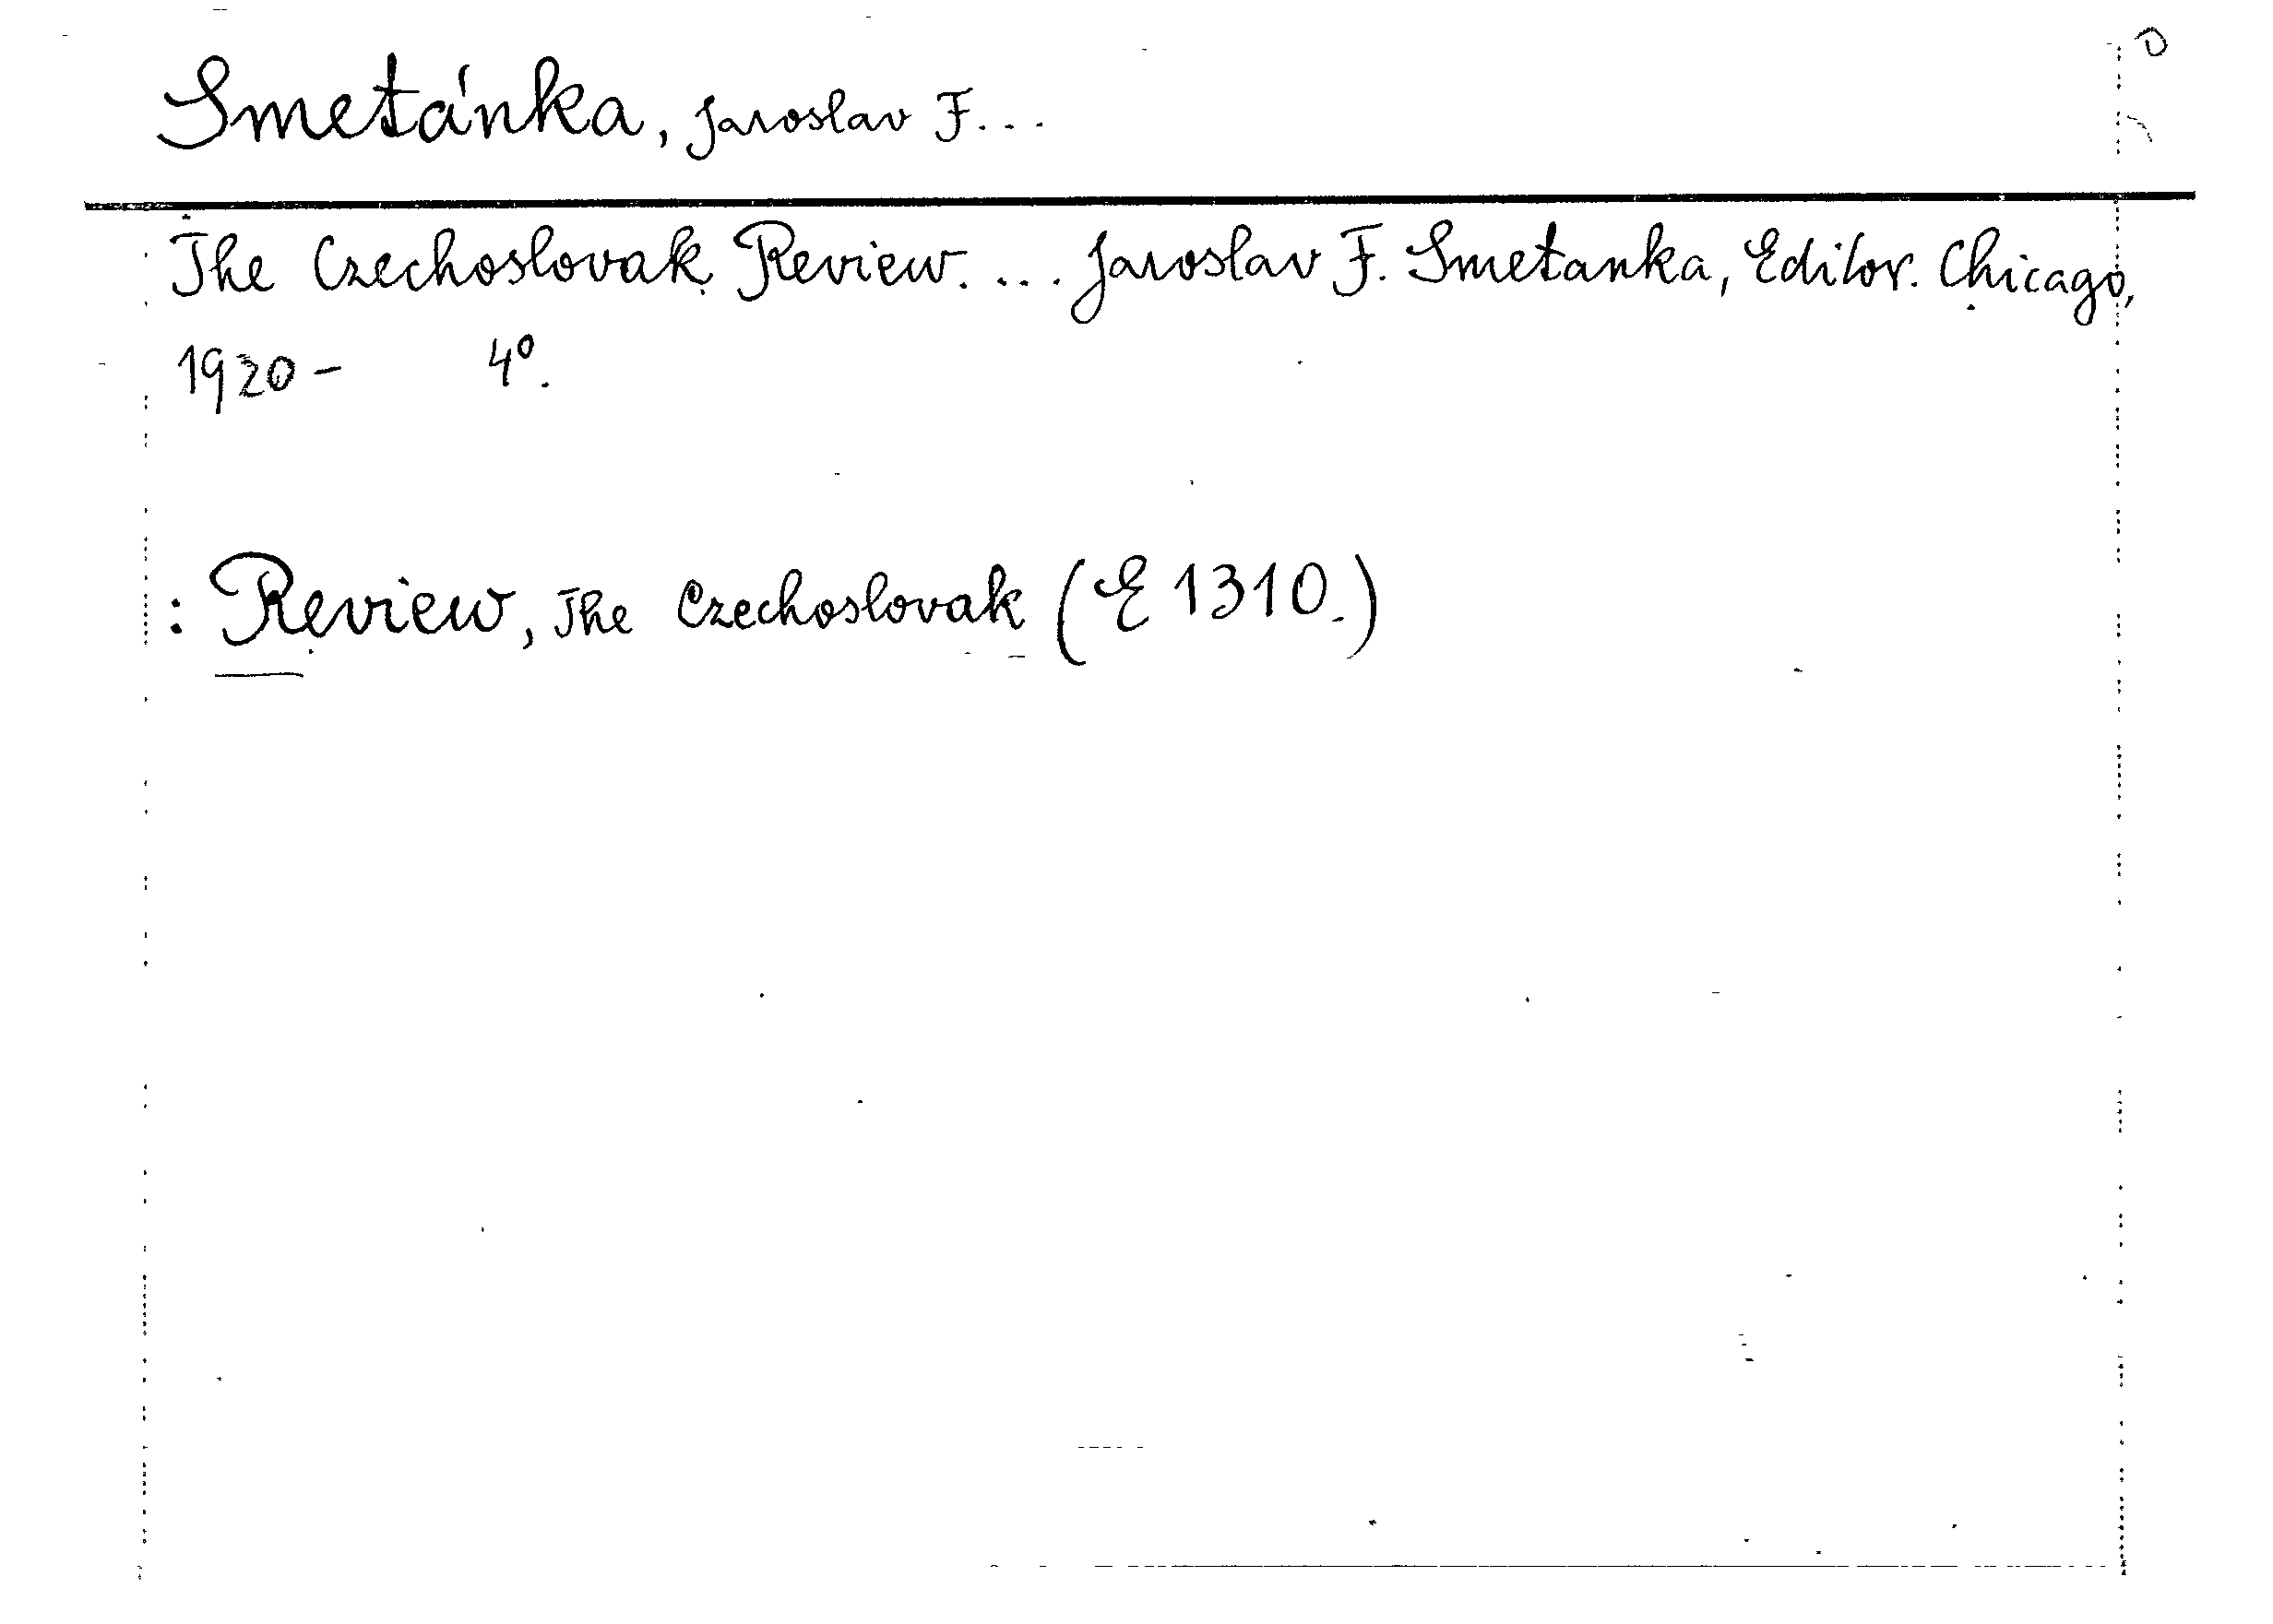 Smetánka, Jaroslav F...
The Czechoslovak Review. ... Jaroslav F. Smetanka, Editor. Chicago,
1920- 4°.
: Review, The Czechoslovak (E 1310.)